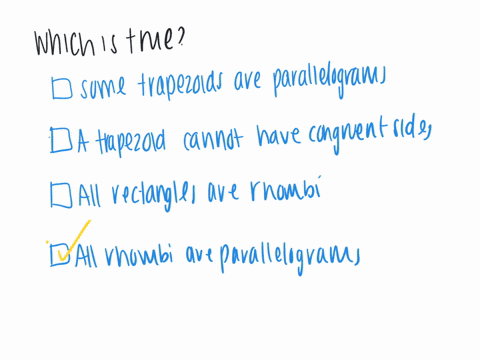 Which is true?
some trapezoids are parallelograms
A trapezoid cannot have congruent sides
All rectangles are rhombi
All rhombi are parallelograms